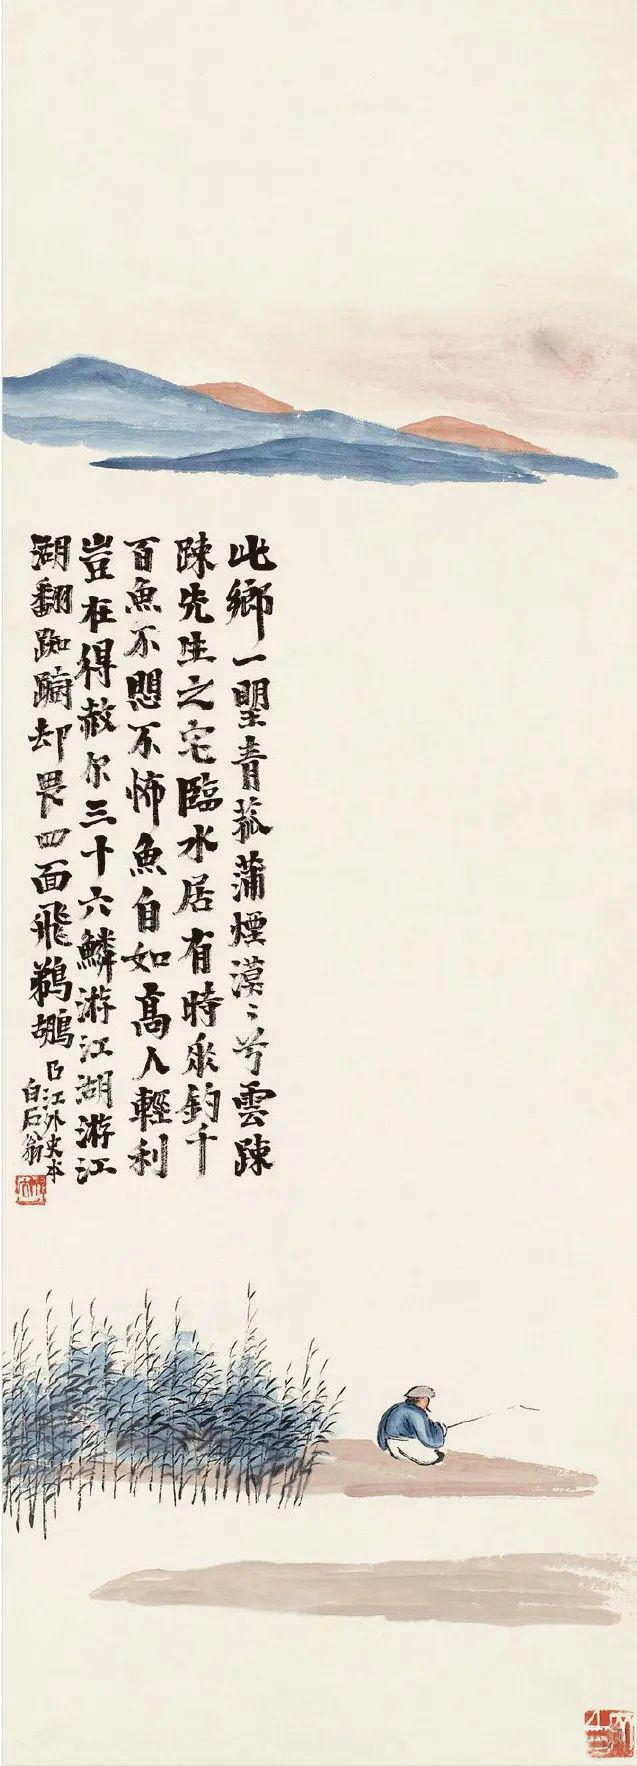 此鄉一望青菰蒲煙漠〻兮雲疎
疎先生之宅臨水居有時垂釣千
百魚不愳不怖魚自如高人輕利
豈在得赦尔三十六鱗游江湖游江
湖翻踟躕却畏四面飛鵜鶘
江外史本
白石翁